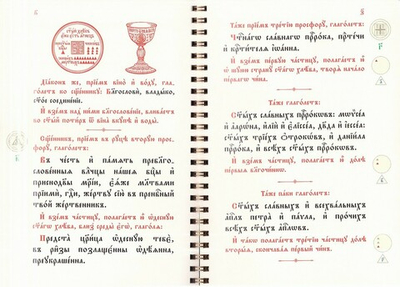 Діаконъ же, прїимъ вїно̀ и҆ во́дꙋ, гла-
го́летъ ко сщ҃е́нникꙋ: Бл҃гослови̑, влады́ко,
ст҃о́е соедине́нїе.
И҆ взе́мъ над̾ ни́ми бл҃гослове́нїе, влива́етъ
во ст҃ы́й поти́ръ ѿ вїна̀ вкꙋ́пѣ и҆ воды̀.
Сщ҃е́нникъ, прїи́мъ въ рꙋцѣ̀ вторꙋ́ю про-
сфорꙋ̀, глаго́летъ:
Въ че́сть и҆ па́мѧть превл҃го-
слове́нныѧ влⷣчцы на́шеѧ бцⷣы и҆
приснодв҃ы мр҃і́и, є҆ѧ́же мл҃твами
прїимѝ, гдⷭ҇и, же́ртвꙋ сїю̀ въ пренбⷭ҇ный
тво́й же́ртвенникъ.
И҆ взе́мъ части́цꙋ, полага́етъ ю҆̀ ѡ҆деснꙋ́ю
ст҃а́гѡ хлѣ́ба, бли́з̾ среды̀ є҆гѡ̀, глаго́лѧ:
Предста̀ цр҃и́ца ѡ҆деснꙋ́ю тебє̀,
въ ри́зы позлаще́нны ѡ҆дѣ́ѧнна,
преꙋкра́шенна.
Та́же прїи́мъ тре́тїю просфорꙋ̀, глаго́летъ:
Чⷭ҇тна́гѡ сла́внагѡ прⷪ҇ро́ка, прⷣте́чи
и҆ крⷭ҇ти́телѧ і҆ѡа́нна.
И҆ взе́мъ пе́рвꙋю части́цꙋ, полага́етъ ю҆̀
ѡ҆ шꙋ́юю странꙋ̀ ст҃а́гѡ хлѣ́ба, творѧ̀ нача́ло
пе́рвагѡ чи́на.
Та́же глаго́летъ:
Ст҃ы́хъ сла́вныхъ прⷪ҇ро́кѡвъ: мѡѷсе́а
и҆ а҆арѡ́на, и҆лїѝ и҆ є҆лїссе́а, дв҃да и҆ і҆ессе́а:
ст҃ы́хъ трїе́хъ ѻ҆́трокѡвъ, и҆ данїи́ла
прⷪ҇ро́ка, и҆ всѣ́хъ ст҃ы́хъ прⷪ҇ро́кѡвъ.
И҆ взе́мъ части́цꙋ, полага́етъ ю҆̀ до́лѣ
пе́рвыѧ бл҃гочи́ннѡ.
Та́же па́ки глаго́летъ:
Ст҃ы́хъ сла́вныхъ и҆ всехва́льныхъ
а҆пⷭ҇лъ петра̀ и҆ па́ѵла, и҆ про́чихъ
всѣ́хъ ст҃ы́хъ а҆пⷭ҇лѡвъ.
И҆ та́кѡ полага́етъ тре́тїю части́цꙋ до́лѣ
вторы́ѧ, сконча́ваѧ пе́рвый чи́нъ.